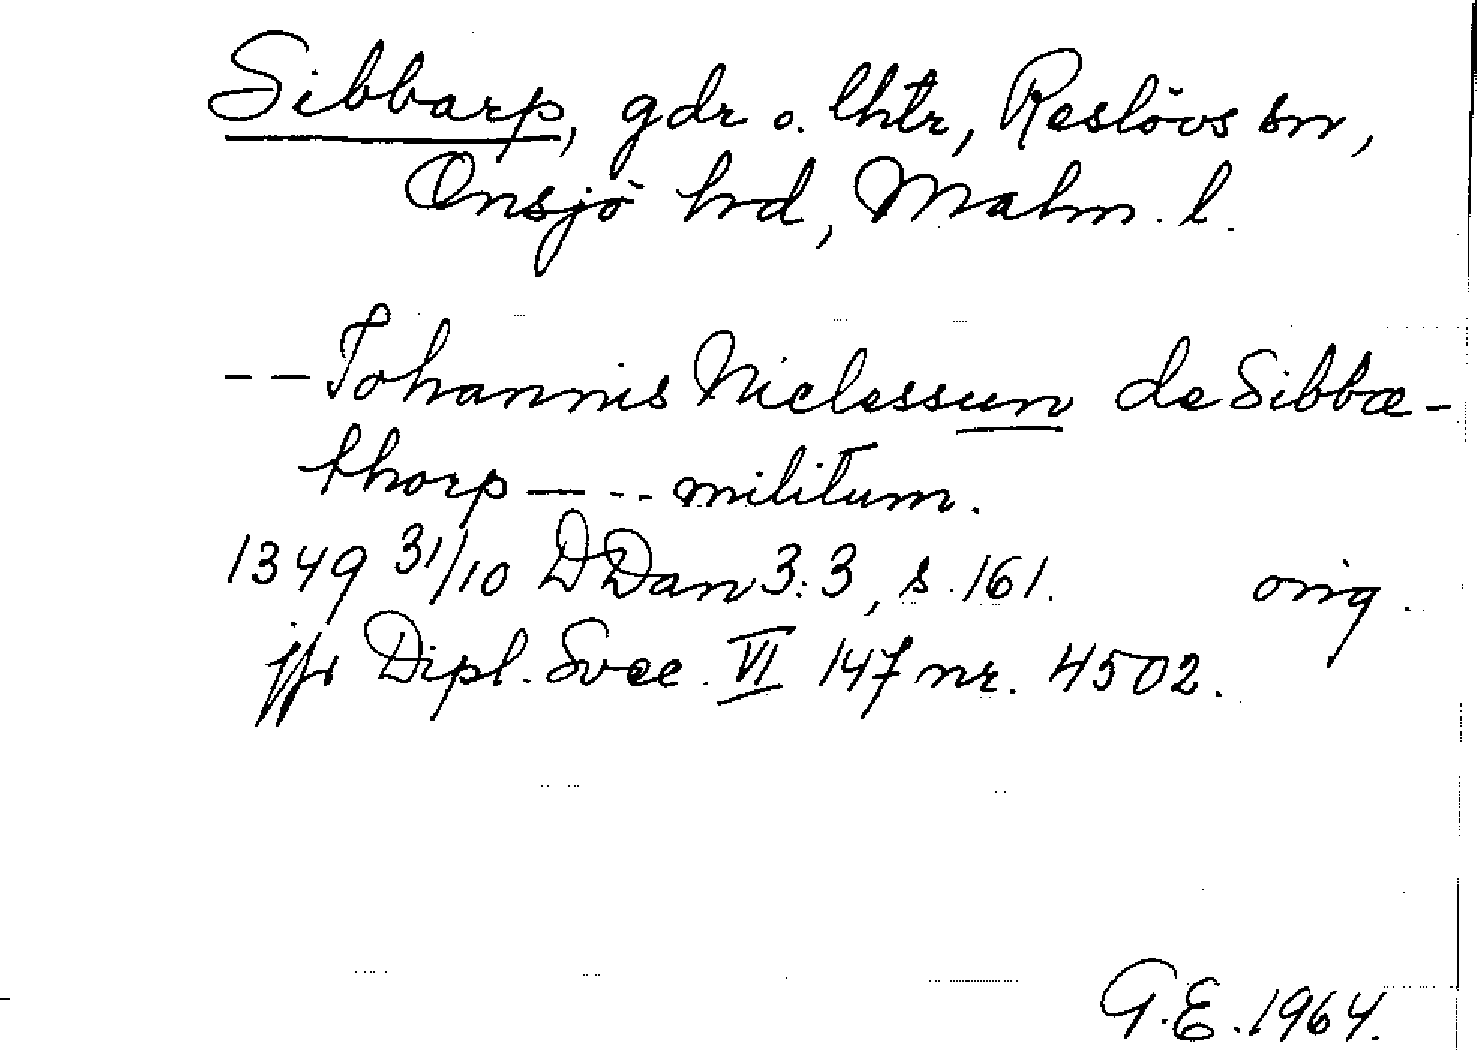 Sibbarp, gdr o. lhtr, Reslövs sn,
Onsjö hrd, Malm. l.
-- Johannis Niclessun de Sibbæ-
thorp — -- militum.
1349 31/10 DDan 3:3, s. 161. orig.
jfr Dipl. Svec. VI 147 nr. 4502.
G.E. 1964.